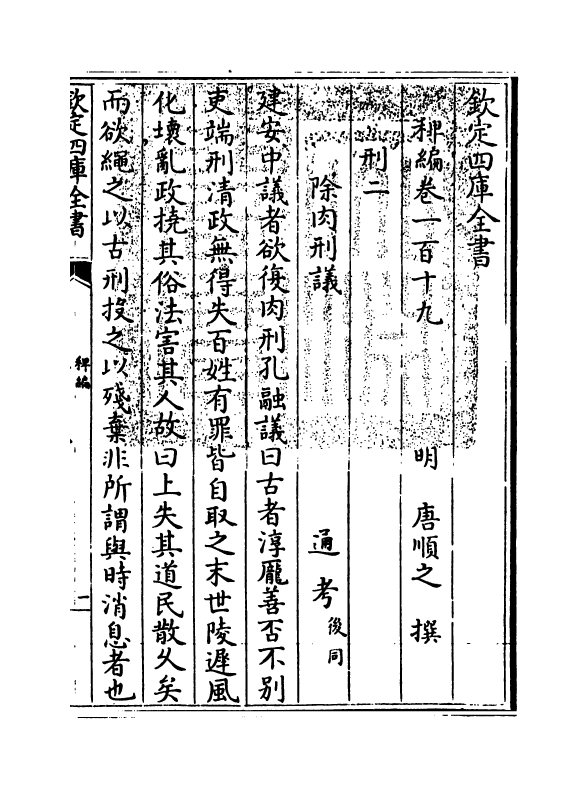 欽定四庫全書
稗編卷一百十九
明 唐順之 撰
刑二
除肉刑議
通考後同
建安中議者欲復肉刑孔融議曰古者淳龐善否不别
吏端刑清政無得失百姓有罪皆自取之末世陵遲風
化壞亂政撓其俗法害其人故曰上失其道民散乆矣
而欲繩之以古刑投之以殘棄非所謂與時消息者也
欽定四庫全書
稗編
一